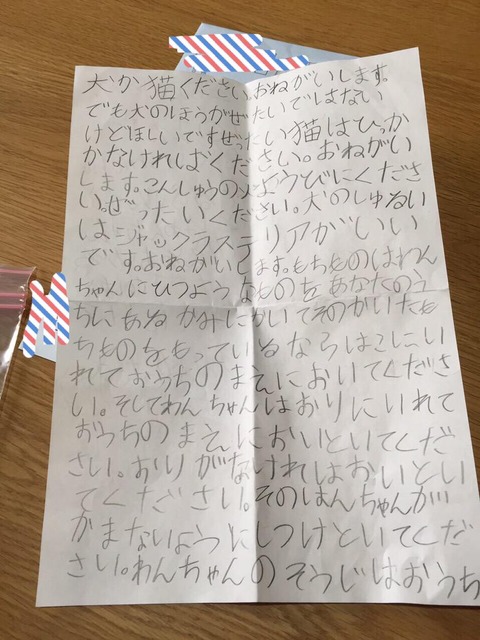 犬か猫ください。おねがいします。
でも犬のほうがぜったいではない
けどほしいですぜったい猫はひっか
かなければください。おねがい
します。こんしゅうの火ようびにくださ
い。ぜったいください。犬のしゅるい
はジャックラステリアがいい
です。おねがいします。もちものはわん
ちゃんにひつようなものをあなたのう
ちにあるかみにかいてそのかいたも
ちものをもっているならはこにい
れておうちのまえにおいてくださ
い。そしてわんちゃんはおりにいれて
おうちのまえにおいといてくだ
さい。おりがなければおいとい
てください。そのはんちゃんが
かまないようにしつけといてくだ
さい。わんちゃんのそうじはおうち